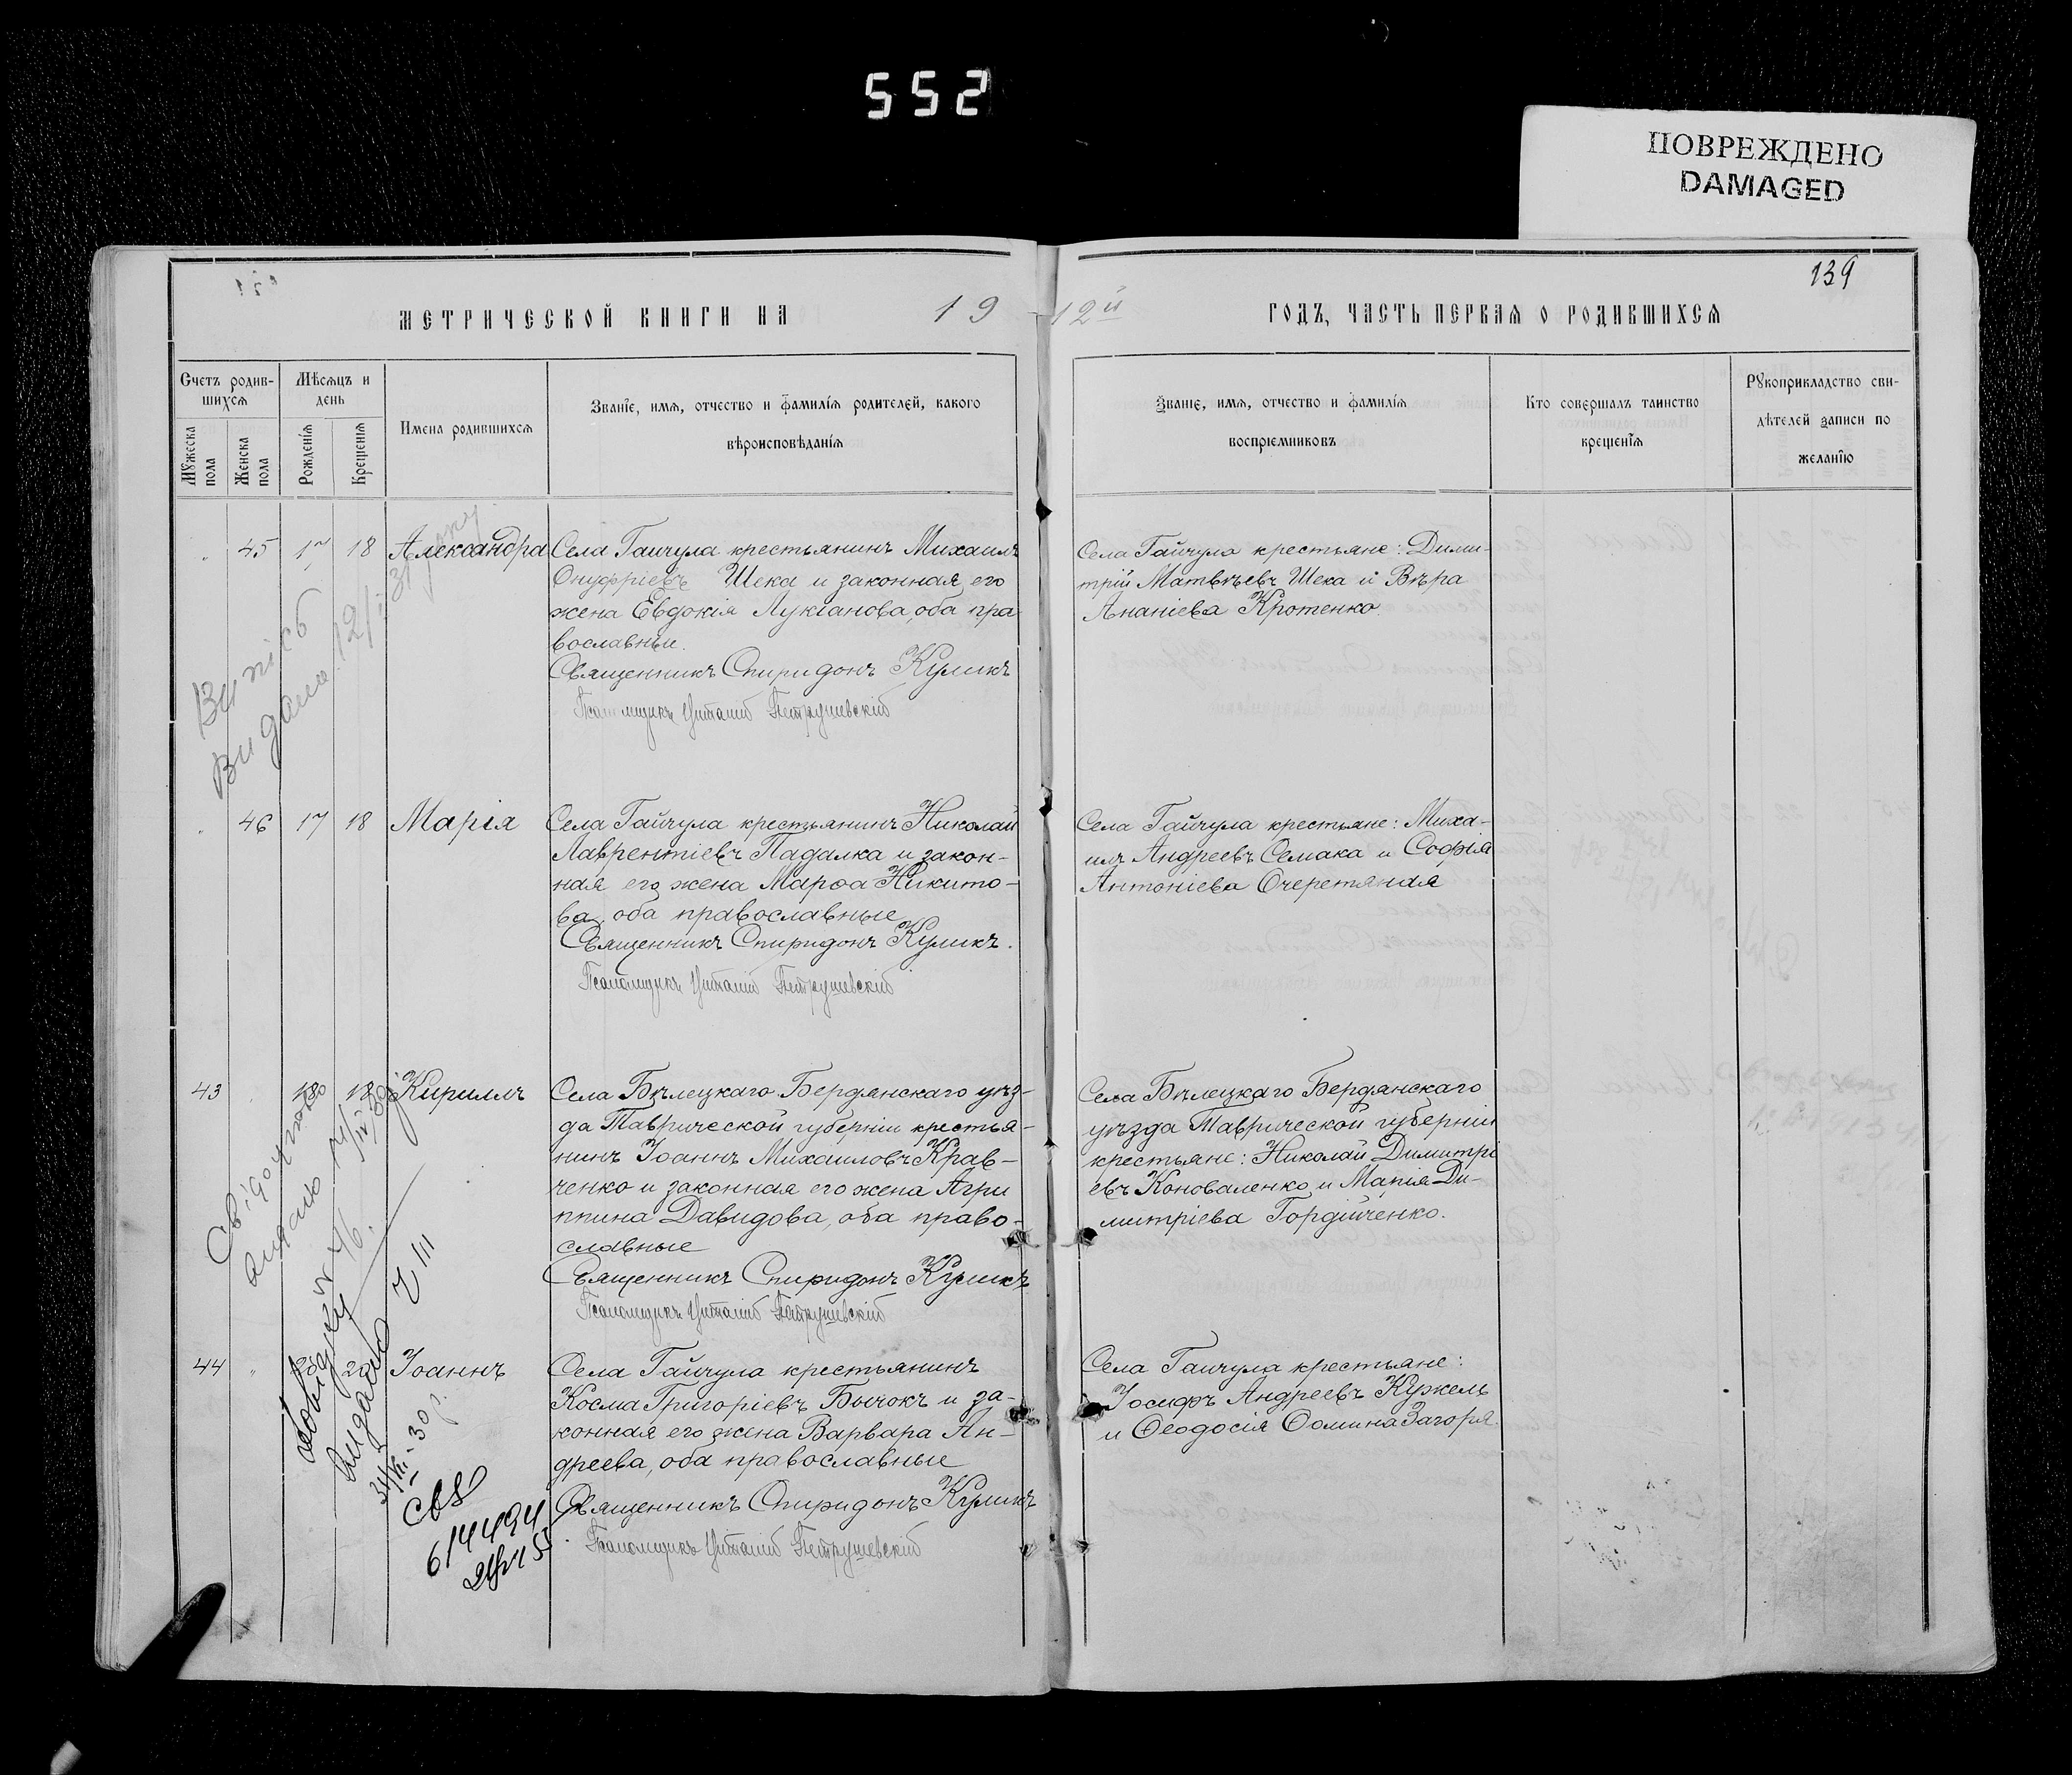 552
ПОВРЕЖДЕНО
DAMAGED
139
МЕТРИЧЕСКОЙ КНИГИ НА 1912й ГОДЪ, ЧАСТЬ ПЕРВАЯ О РОДИВШИХСЯ
Счетъ родив-
шихся
Мужеска
пола
Женска
пола
Мѣсяцъ и
день
Рожденія
Крещенія
Имена родившихся
Званіе, имя, отчество и фамилія родителей, какого
вѣроисповѣданія
Званіе, имя, отчество и фамилія
воспріемниковъ
Кто совершалъ таинство
крещенія
Рукоприкладство сви-
дѣтелей записи по
желанію
45 17 18 Александра
Села Гайчула крестьянинъ Михаилъ
Онуфріевъ Шека и законная его
жена Евдокія Лукіанова, оба пра
вославные.
Священникъ Спиридонъ Куликъ
Псаломщикъ Виталій Петрушевскій
Села Гайчула крестьяне: Дими-
трій Матвѣевъ Шека и Вѣра
Ананіева Кротенко.
Витяг
видано 12/
46 17 18 Марія
Села Гайчула крестьянинъ Николай
Лаврентіевъ Падалка и закон-
ная его жена Марѳа Никито-
ва, оба православные
Священникъ Спиридонъ Куликъ.
Псаломщикъ Виталій Петрушевскій
Села Гайчула крестьяне: Миха-
илъ Андреевъ Семака и Софія
Антоніева Очеретяная
43 18 18 Кириллъ
Села Бѣлецкаго Бердянскаго уѣз-
да Таврической губерніи крестья-
нинъ Іоаннъ Михаиловъ Крав-
ченко и законная его жена Агри
ппина Давидова, оба право-
славные
Священникъ Спиридонъ Куликъ
Псаломщикъ Виталій Петрушевскій
Села Бѣлецкаго Бердянскаго
уѣзда Таврической губерніи
крестьяне: Николай Димитрі
евъ Коноваленко и Марія Ди-
митріева Гордійченко.
видано
44 20 Іоаннъ
Села Гайчула крестьянинъ
Косма Григоріевъ Бычокъ и за-
конная его жена Варвара Ан-
дреева, оба православные
Священникъ Спиридонъ Куликъ
Псаломщикъ Виталій Петрушевскій
Села Гайчула крестьяне:
Іосифъ Андреевъ Кужель
и Ѳеодосія Ѳомина Загоря.
Довідку
видано
614494